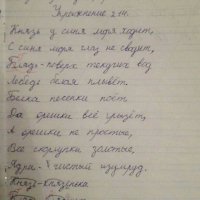 Упражнение 214.
Князь у синя моря ходит,
С синя моря глаз не сводит,
Глядь-поверх текучих вод
Лебедь белая плывёт.
Белка песенки поёт
Да орешки всё грызёт,
А орешки не простые,
Все скорлупки золотые,
Ядра - чистый изумруд.
Князь-княгиня